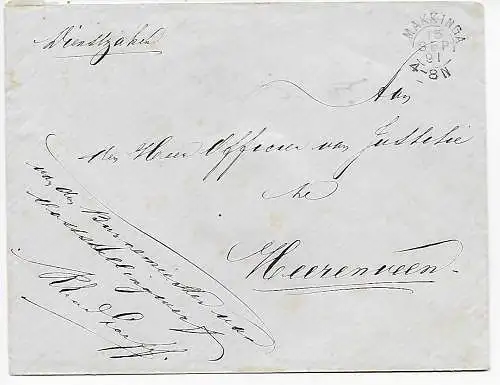 Dienstzaken
MAKKINGA
15
SEP
91
4-8N
Aan
den Heer Officier van Justitie
te
Heerenveen.
van den Burgemeester van
Ooststellingwerf